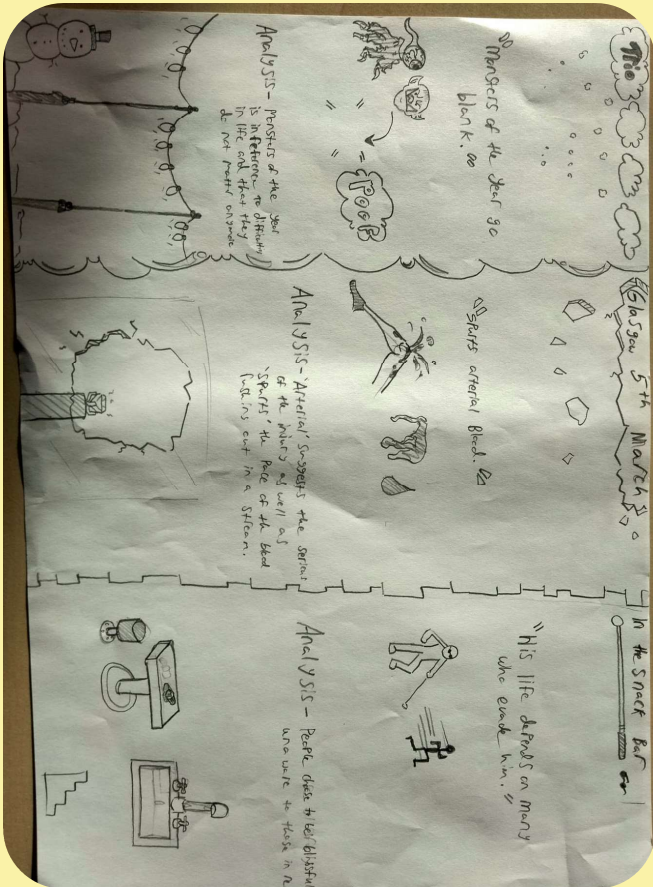 Trio
"Monsters of the Year go
blank."
POOF
Analysis - Monsters of the Year
is in reference to difficulties
in life and that they
do not matter anymore
Glasgow 5th March
"Spurts arterial blood."
Analysis - 'Arterial' suggests the serious
of the injury as well as
'spurts' the pace of the blood
rushing out in a stream.
In the Snack Bar
"His life depends on many
who evade him."
Analysis - People chose to be blissful
unaware to those in